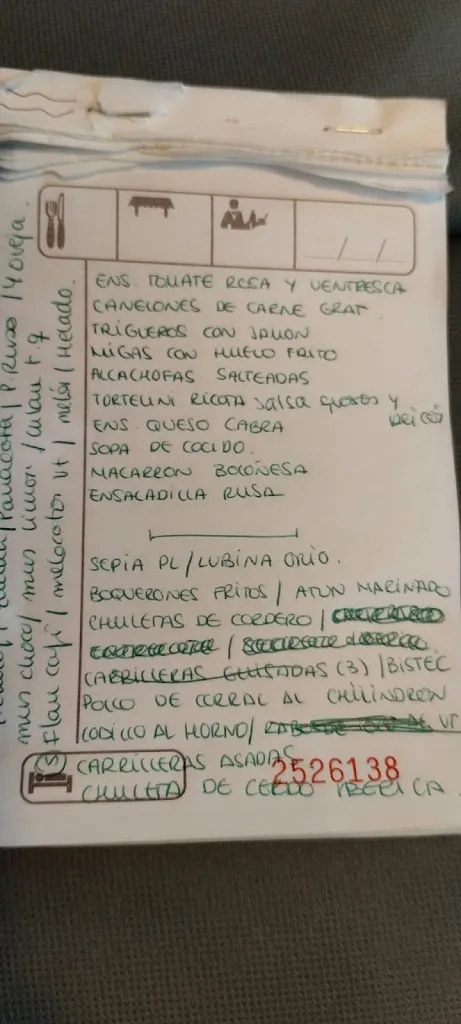 ENS. TOMATE ROSA Y VENTRESCA
CANELONES DE CARNE GRAT
TRIGUEROS CON JAMON
MIGAS CON HUEVO FRITO
ALCACHOFAS SALTEADAS
TORTELINI RICOTA salsa quesos y
ENS. QUESO CABRA
SOPA DE COCIDO.
MACARRON BOLOÑESA
ENSALADILLA RUSA
SEPIA PL/LUBINA ORIO.
BOQUERONES FRITOS / ATUN MARINADO
CHULETAS DE CORDERO /
CARRILLERAS GUISADAS (3) / BISTEC
POLLO DE CORRAL AL CHILINDRON
CODILLO AL HORNO/ VT
CARRILLERAS ASADAS
2526138
CHULETA DE CERDO IBERICA
/ Panacota / P. Ruso / Y oveja.
mus choco / mus limon / cuban t q
(S) Flan café / melocoton VT / melón / Helado.